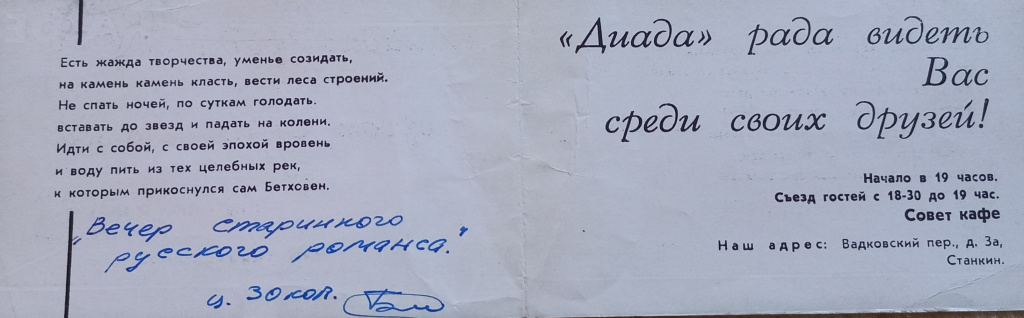 Есть жажда творчества, уменье созидать,
на камень камень класть, вести леса строений.
Не спать ночей, по суткам голодать.
вставать до звезд и падать на колени.
Идти с собой, с своей эпохой вровень
и воду пить из тех целебных рек,
к которым прикоснулся сам Бетховен.
„Вечер старинного
русского романса."
ц. 30 коп.
«Диада» рада видеть
Вас
среди своих друзей!
Начало в 19 часов.
Съезд гостей с 18-30 до 19 час.
Совет кафе
Наш адрес: Вадковский пер., д. 3а,
Станкин.